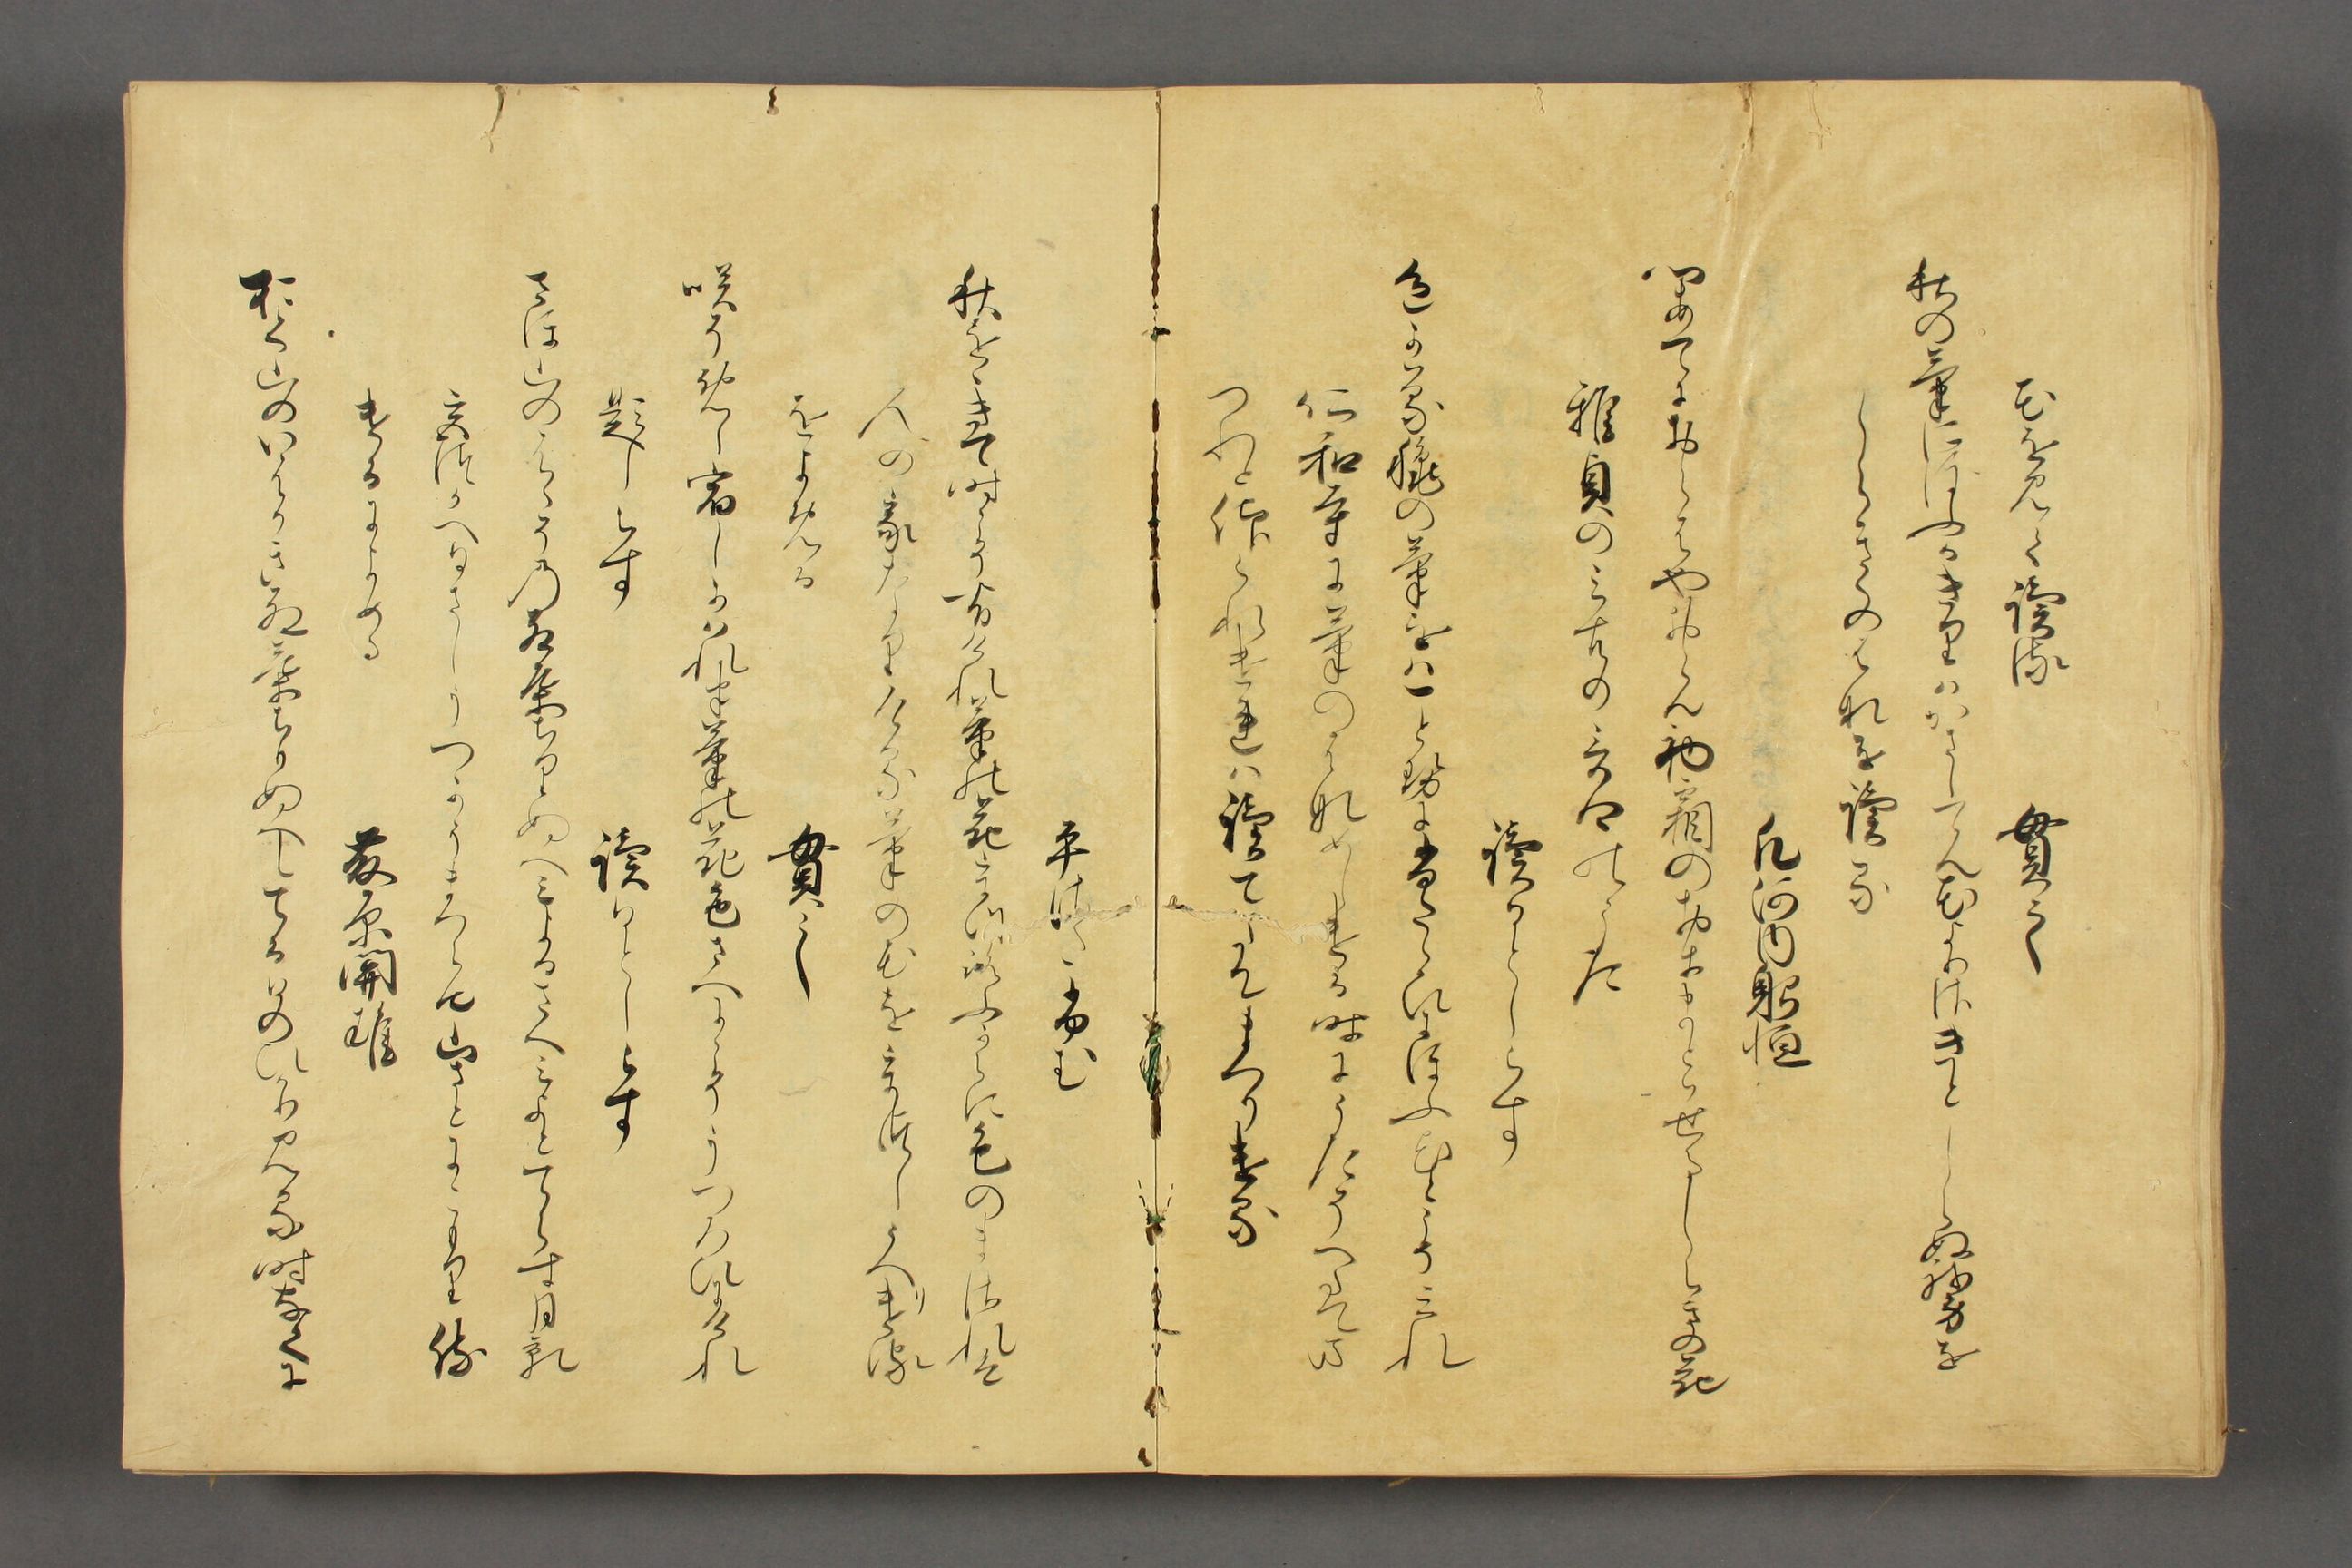 花を見て読る　　　貫之
秋の菊にほふかきりはかさしてん花よりさきとしらぬ我身を
しらきくのはなを読る
凡河内躬恒
心あてにおらはやおらん初霜のをきまとはせるしらきくの花
雅貞のみこの家の哥合のうた
読人しらす
色かはる穐の菊をは一とせにふたゝひにほふ花とこそみれ
仁和寺に菊のはなめしける時にうたそへて
つれと仰られけれは読てたてまつりける
平さたふむ
秋をゝきて時こそ有けれ菊の花うつろふからに色のまされは
人の家なりける菊の花をうつしうへける
をよめる　　　貫之
咲そめし宿しかはれは菊の花色さへにこそうつろひにけれ
題しらす　　　読人しらす
さほ山のはゝその紅葉ちりぬへみよるさへみよとてらす月影
宮つかへ久しうつかうまつらて山さとにこもり侍
けるによめる　　　藤原関雄
おく山のいはかき紅葉ちりぬへしてる日のひかり見る時なくて